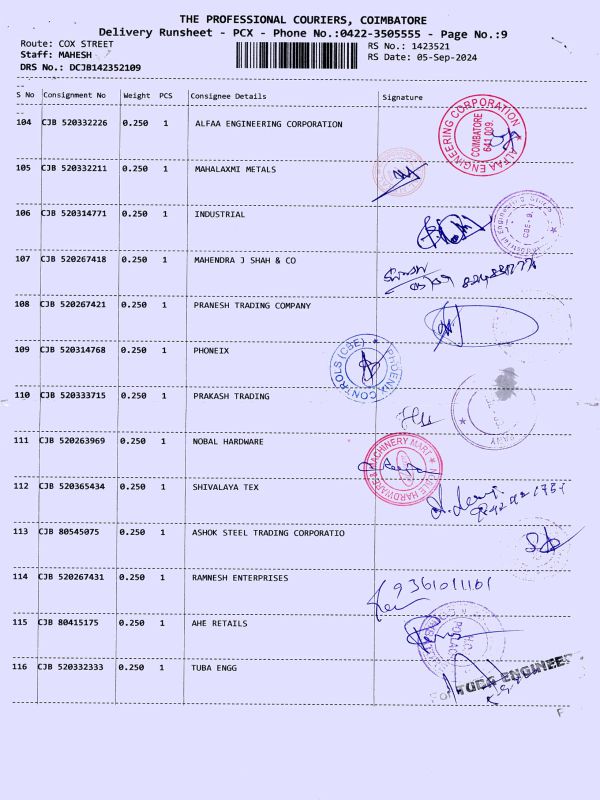 THE PROFESSIONAL COURIERS, COIMBATORE
Delivery Runsheet - PCX - Phone No.:0422-3505555 - Page No.:9
Route: COX STREET RS No.: 1423521
Staff: MAHESH RS Date: 05-Sep-2024
DRS No.: DCJB142352109
S No Consignment No Weight PCS Consignee Details Signature
104 CJB 520332226 0.250 1 ALFAA ENGINEERING CORPORATION
ALFAA ENGINEERING CORPORATION
COIMBATORE
641 009.
105 CJB 520332211 0.250 1 MAHALAXMI METALS
106 CJB 520314771 0.250 1 INDUSTRIAL
CBE-9.
107 CJB 520267418 0.250 1 MAHENDRA J SHAH & CO
108 CJB 520267421 0.250 1 PRANESH TRADING COMPANY
109 CJB 520314768 0.250 1 PHONEIX
PHOENIX CONTROLS (CBE)
110 CJB 520333715 0.250 1 PRAKASH TRADING
111 CJB 520263969 0.250 1 NOBAL HARDWARE
HARDWARE & MACHINERY MART
112 CJB 520365434 0.250 1 SHIVALAYA TEX
113 CJB 80545075 0.250 1 ASHOK STEEL TRADING CORPORATIO
114 CJB 520267431 0.250 1 RAMNESH ENTERPRISES
9361011101
115 CJB 80415175 0.250 1 AHE RETAILS
116 CJB 520332333 0.250 1 TUBA ENGG
For TUBA ENGINEER
F